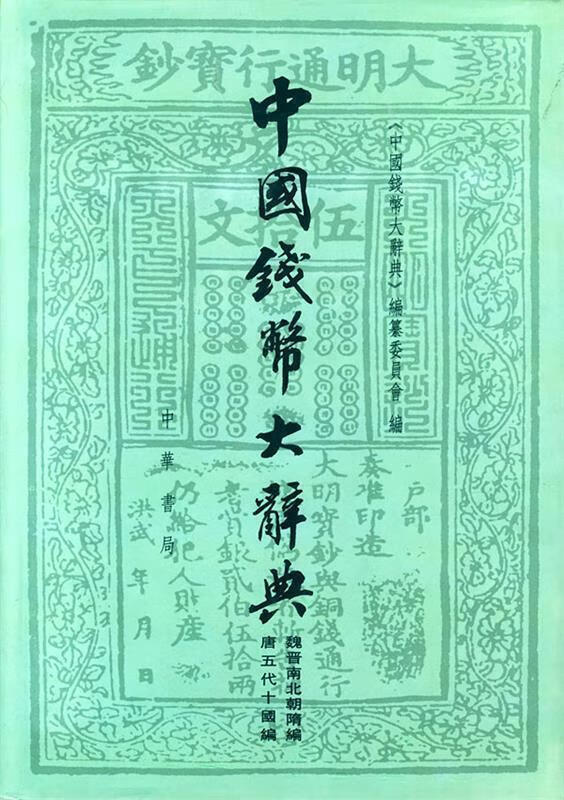 《中國錢幣大辭典》編纂委員會 編
中國錢幣大辭典
魏晋南北朝隋編
唐五代十國編
中華書局
大明通行寶鈔
伍拾文
户部
奏准印造
大明寶鈔與銅錢通行
者賞銀貳伯伍拾兩
仍給犯人財産
洪武 年 月 日